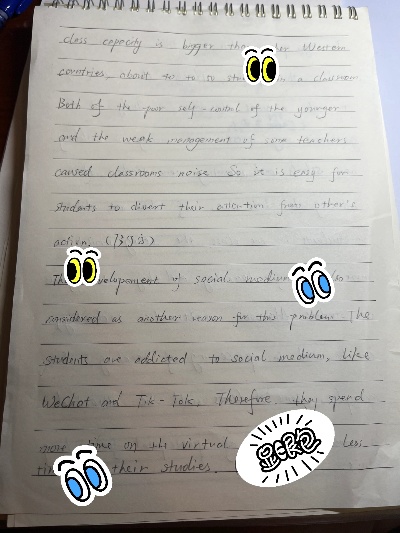 class capacity is bigger than other Western
countries about to to so in a classroom
Both of the poor self-control of the younger
and the weak management of some teachers
caused classrooms noise So it is easy for
students to divert their attention from other's
action.
The development of social medium
considered as another reason for this problem The
students are addicted to social medium, like
WeChat and Tik-Tok. Therefore they spend
more time on the virtual less
their studies.